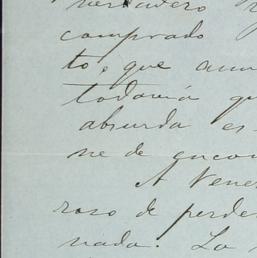 verdadero
comprado
to, que aun
todavía qu
absurda es
ne de encon
A Vene
roso de perde
nada. La